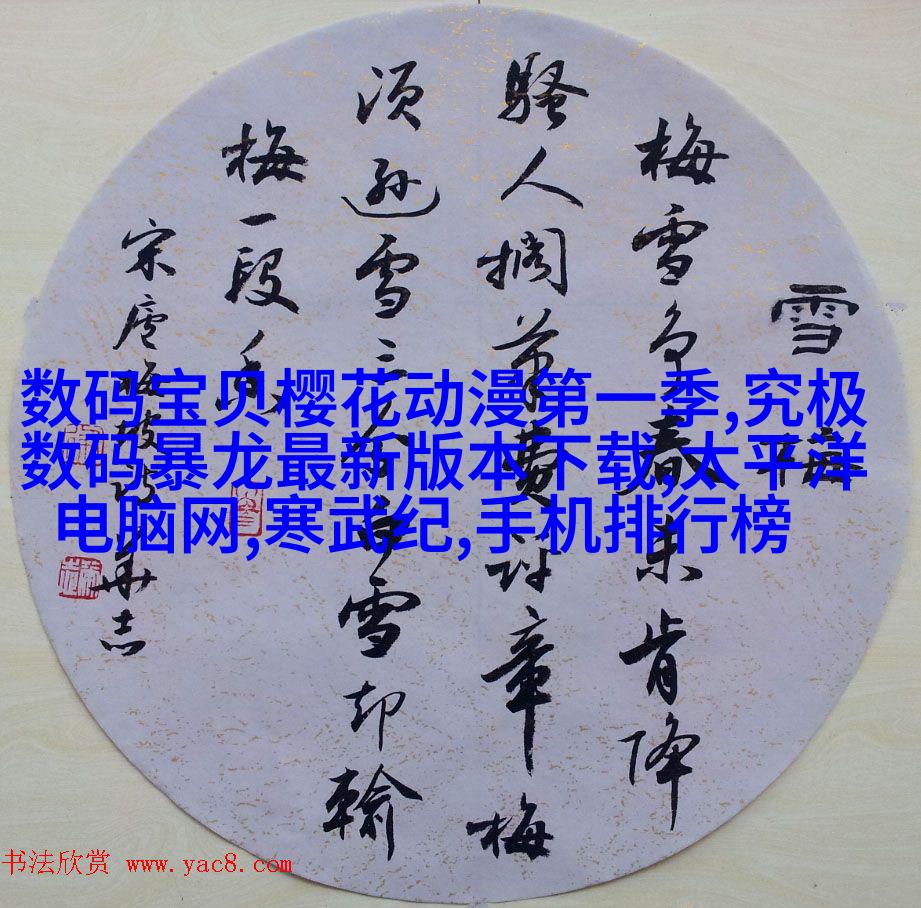 雪梅
梅雪争春未肯降
骚人搁笔费评章梅
须逊雪三分白雪却輸
梅一段香
宋卢梅坡诗
数码宝贝樱花动漫第一季,究极
数码暴龙最新版本下载,太平洋
电脑网,寒武纪,手机排行榜
书法欣赏 www.yac8.com